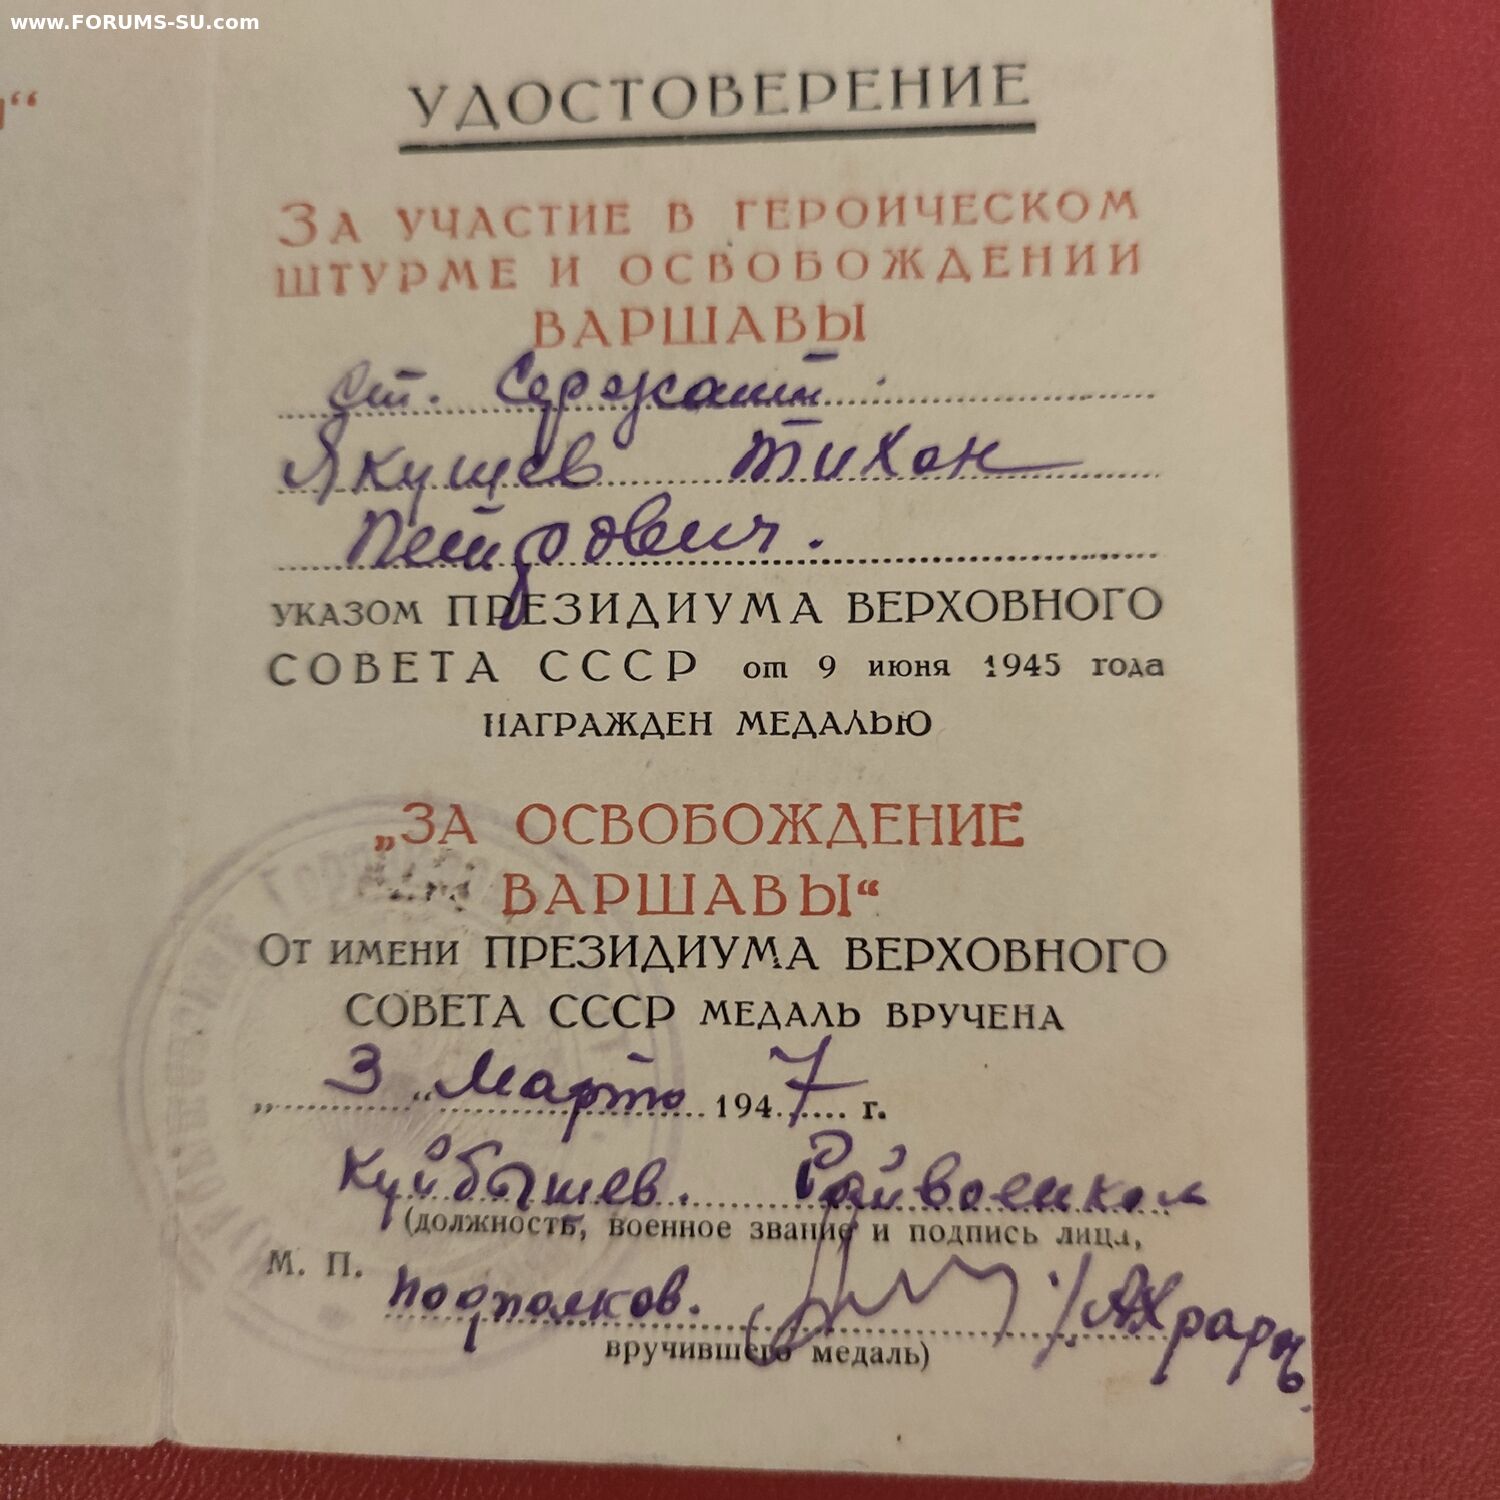 www.FORUMS-SU.com
УДОСТОВЕРЕНИЕ
ЗА УЧАСТИЕ В ГЕРОИЧЕСКОМ
ШТУРМЕ И ОСВОБОЖДЕНИИ
ВАРШАВЫ
Ст. Сержант
Якушев Тихон
Петрович.
УКАЗОМ ПРЕЗИДИУМА ВЕРХОВНОГО
СОВЕТА СССР от 9 июня 1945 года
НАГРАЖДЕН МЕДАЛЬЮ
„ЗА ОСВОБОЖДЕНИЕ
ВАРШАВЫ“
ОТ ИМЕНИ ПРЕЗИДИУМА ВЕРХОВНОГО
СОВЕТА СССР МЕДАЛЬ ВРУЧЕНА
„ 3 “ Марта 1947 г.
Куйбышев. Райвоенком
(должность, военное звание и подпись лица,
М. П. подполков.
вручившего медаль)